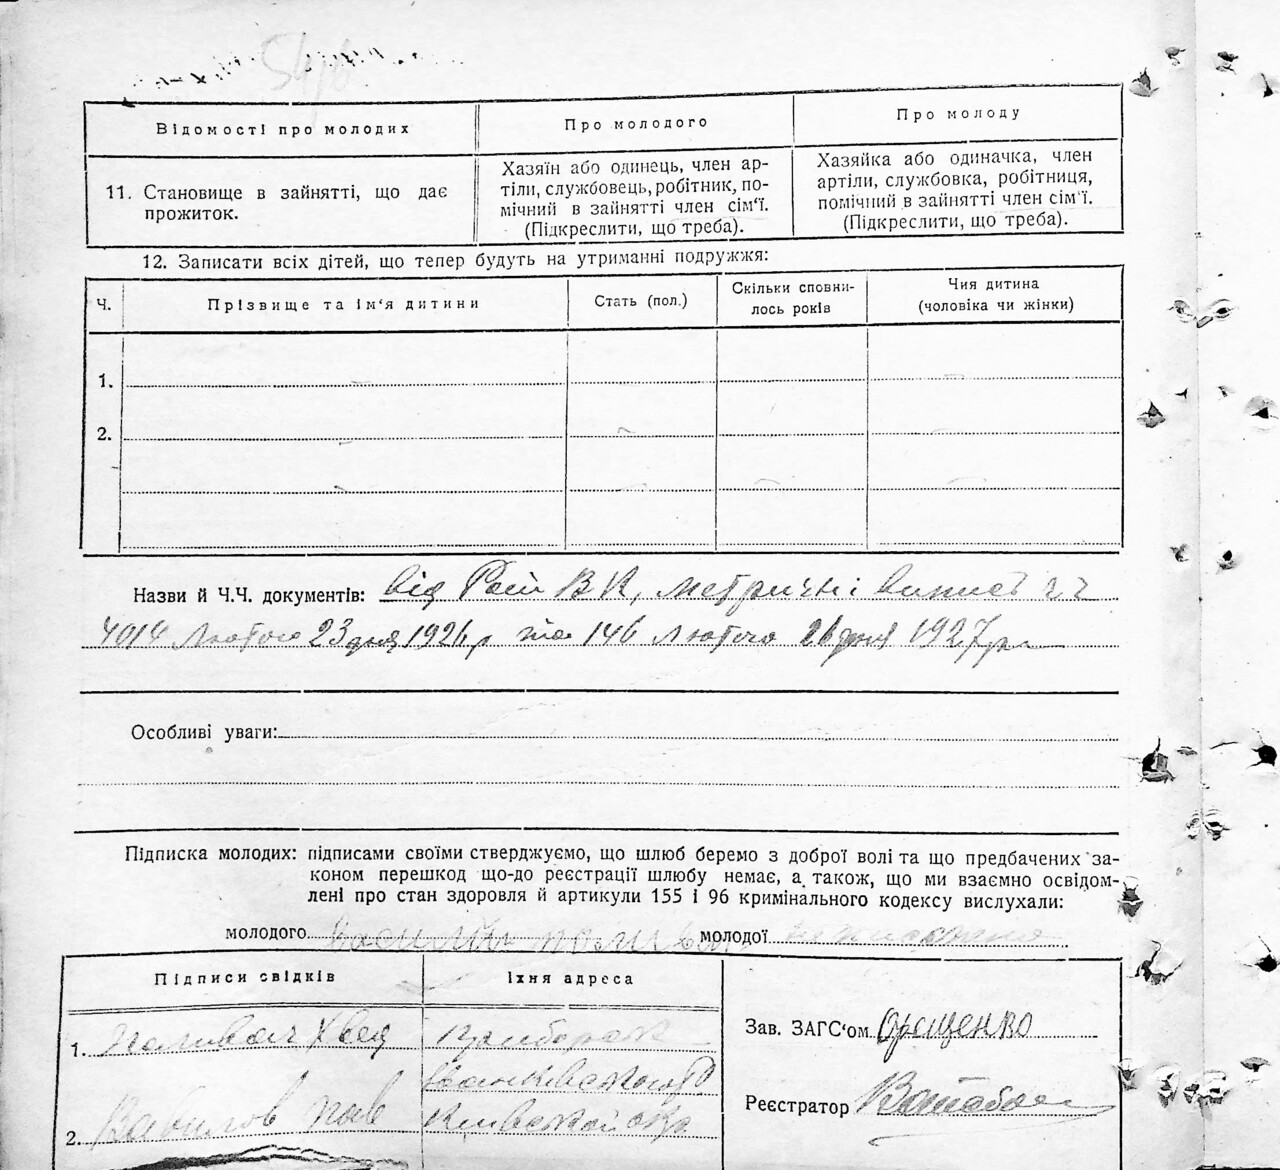 Відомості про молодих
Про молодого
Про молоду
11. Становище в зайнятті, що дає
прожиток.
Хазяїн або одинець, член ар-
тіли, службовець, робітник, по-
мічний в зайнятті член сім'ї.
(Підкреслити, що треба).
Хазяйка або одиначка, член
артіли, службовка, робітниця,
помічний в зайнятті член сім'ї.
(Підкреслити, що треба).
12. Записати всіх дітей, що тепер будуть на утриманні подружжя:
Ч.
Прізвище та ім'я дитини
Стать (пол.)
Скільки сповни-
лось років
Чия дитина
(чоловіка чи жінки)
1.
2.
Назви й Ч.Ч. документів: від В К, метричні
4014 Лютого 23 дня 1926 р та 146 Лютого 26 дня 1927 р
Особливі уваги:
Підписка молодих: підписами своїми стверджуємо, що шлюб беремо з доброї волі та що предбачених за-
коном перешкод що-до реєстрації шлюбу немає, а також, що ми взаємно освідом-
лені про стан здоровля й артикули 155 і 96 кримінального кодексу вислухали:
молодого молодої
Підписи свідків
Їхня адреса
1.
2.
Зав. ЗАГС'ом Орещенко
Реєстратор